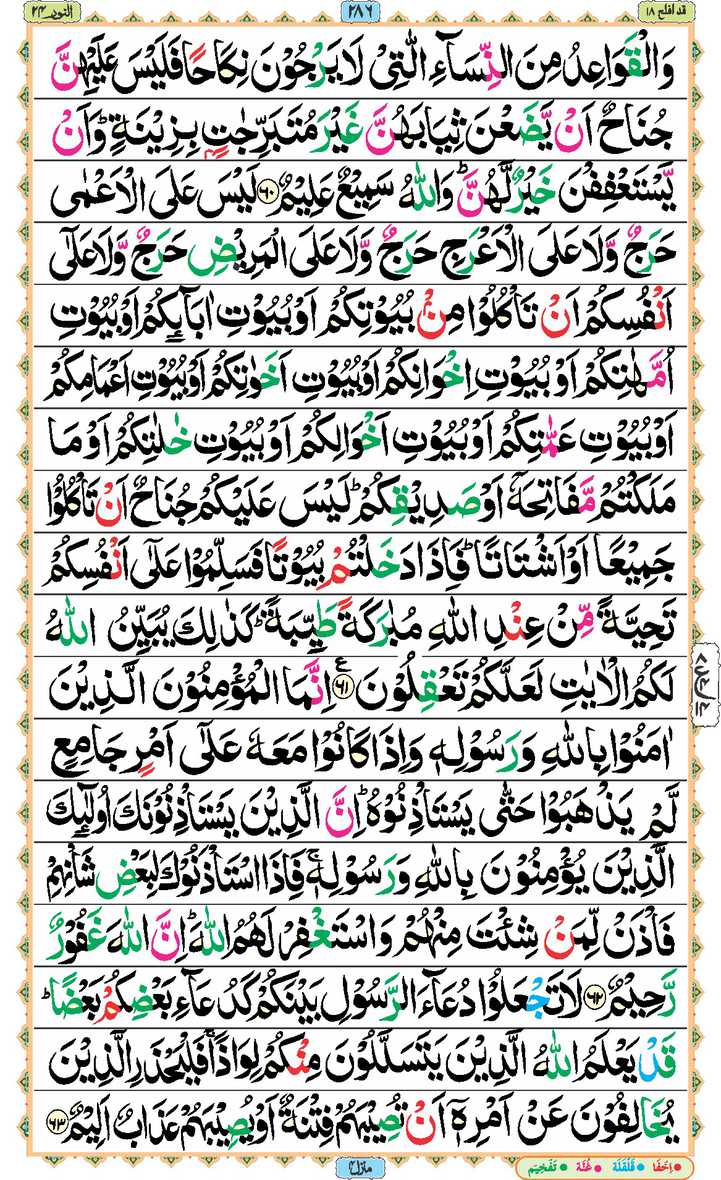 قد افلح ١٨
٢٨٦
النور ٢٤
وَالْقَوَاعِدُ مِنَ النِّسَآءِ الّٰتِیْ لَا یَرْجُوْنَ نِكَاحًا فَلَیْسَ عَلَیْهِنَّ
جُنَاحٌ اَنْ یَّضَعْنَ ثِیَابَهُنَّ غَیْرَ مُتَبَرِّجٰتٍۭ بِزِیْنَةٍ ؕ وَ اَنْ
یَّسْتَعْفِفْنَ خَیْرٌ لَّهُنَّ ؕ وَاللّٰهُ سَمِیْعٌ عَلِیْمٌ ﴿۶۰﴾ لَیْسَ عَلَی الْاَعْمٰی
حَرَجٌ وَّلَا عَلَی الْاَعْرَجِ حَرَجٌ وَّلَا عَلَی الْمَرِیْضِ حَرَجٌ وَّلَا عَلٰۤی
اَنْفُسِكُمْ اَنْ تَاْكُلُوْا مِنْۢ بُیُوْتِكُمْ اَوْ بُیُوْتِ اٰبَآىِٕكُمْ اَوْ بُیُوْتِ
اُمَّهٰتِكُمْ اَوْ بُیُوْتِ اِخْوَانِكُمْ اَوْ بُیُوْتِ اَخَوٰتِكُمْ اَوْ بُیُوْتِ اَعْمَامِكُمْ
اَوْ بُیُوْتِ عَمّٰتِكُمْ اَوْ بُیُوْتِ اَخْوَالِكُمْ اَوْ بُیُوْتِ خٰلٰتِكُمْ اَوْ مَا
مَلَكْتُمْ مَّفَاتِحَهٗۤ اَوْ صَدِیْقِكُمْ ؕ لَیْسَ عَلَیْكُمْ جُنَاحٌ اَنْ تَاْكُلُوْا
جَمِیْعًا اَوْ اَشْتَاتًا ؕ فَاِذَا دَخَلْتُمْ بُیُوْتًا فَسَلِّمُوْا عَلٰۤی اَنْفُسِكُمْ
تَحِیَّةً مِّنْ عِنْدِ اللّٰهِ مُبٰرَكَةً طَیِّبَةً ؕ كَذٰلِكَ یُبَیِّنُ اللّٰهُ
لَكُمُ الْاٰیٰتِ لَعَلَّكُمْ تَعْقِلُوْنَ ﴿۶۱﴾ ع اِنَّمَا الْمُؤْمِنُوْنَ الَّذِیْنَ
اٰمَنُوْا بِاللّٰهِ وَ رَسُوْلِهٖ وَاِذَا كَانُوْا مَعَهٗ عَلٰۤی اَمْرٍ جَامِعٍ
لَّمْ یَذْهَبُوْا حَتّٰی یَسْتَاْذِنُوْهُ ؕ اِنَّ الَّذِیْنَ یَسْتَاْذِنُوْنَكَ اُولٰٓىِٕكَ
الَّذِیْنَ یُؤْمِنُوْنَ بِاللّٰهِ وَ رَسُوْلِهٖ ۚ فَاِذَا اسْتَاْذَنُوْكَ لِبَعْضِ شَاْنِهِمْ
فَاْذَنْ لِّمَنْ شِئْتَ مِنْهُمْ وَاسْتَغْفِرْ لَهُمُ اللّٰهَ ؕ اِنَّ اللّٰهَ غَفُوْرٌ
رَّحِیْمٌ ﴿۶۲﴾ لَا تَجْعَلُوْا دُعَآءَ الرَّسُوْلِ بَیْنَكُمْ كَدُعَآءِ بَعْضِكُمْ بَعْضًا ؕ
قَدْ یَعْلَمُ اللّٰهُ الَّذِیْنَ یَتَسَلَّلُوْنَ مِنْكُمْ لِوَاذًا ۚ فَلْیَحْذَرِ الَّذِیْنَ
یُخَالِفُوْنَ عَنْ اَمْرِهٖۤ اَنْ تُصِیْبَهُمْ فِتْنَةٌ اَوْ یُصِیْبَهُمْ عَذَابٌ اَلِیْمٌ ﴿۶۳﴾
منزل ۴
اِخفَا قَلْقَلَة غُنَّة تَفْخِیم